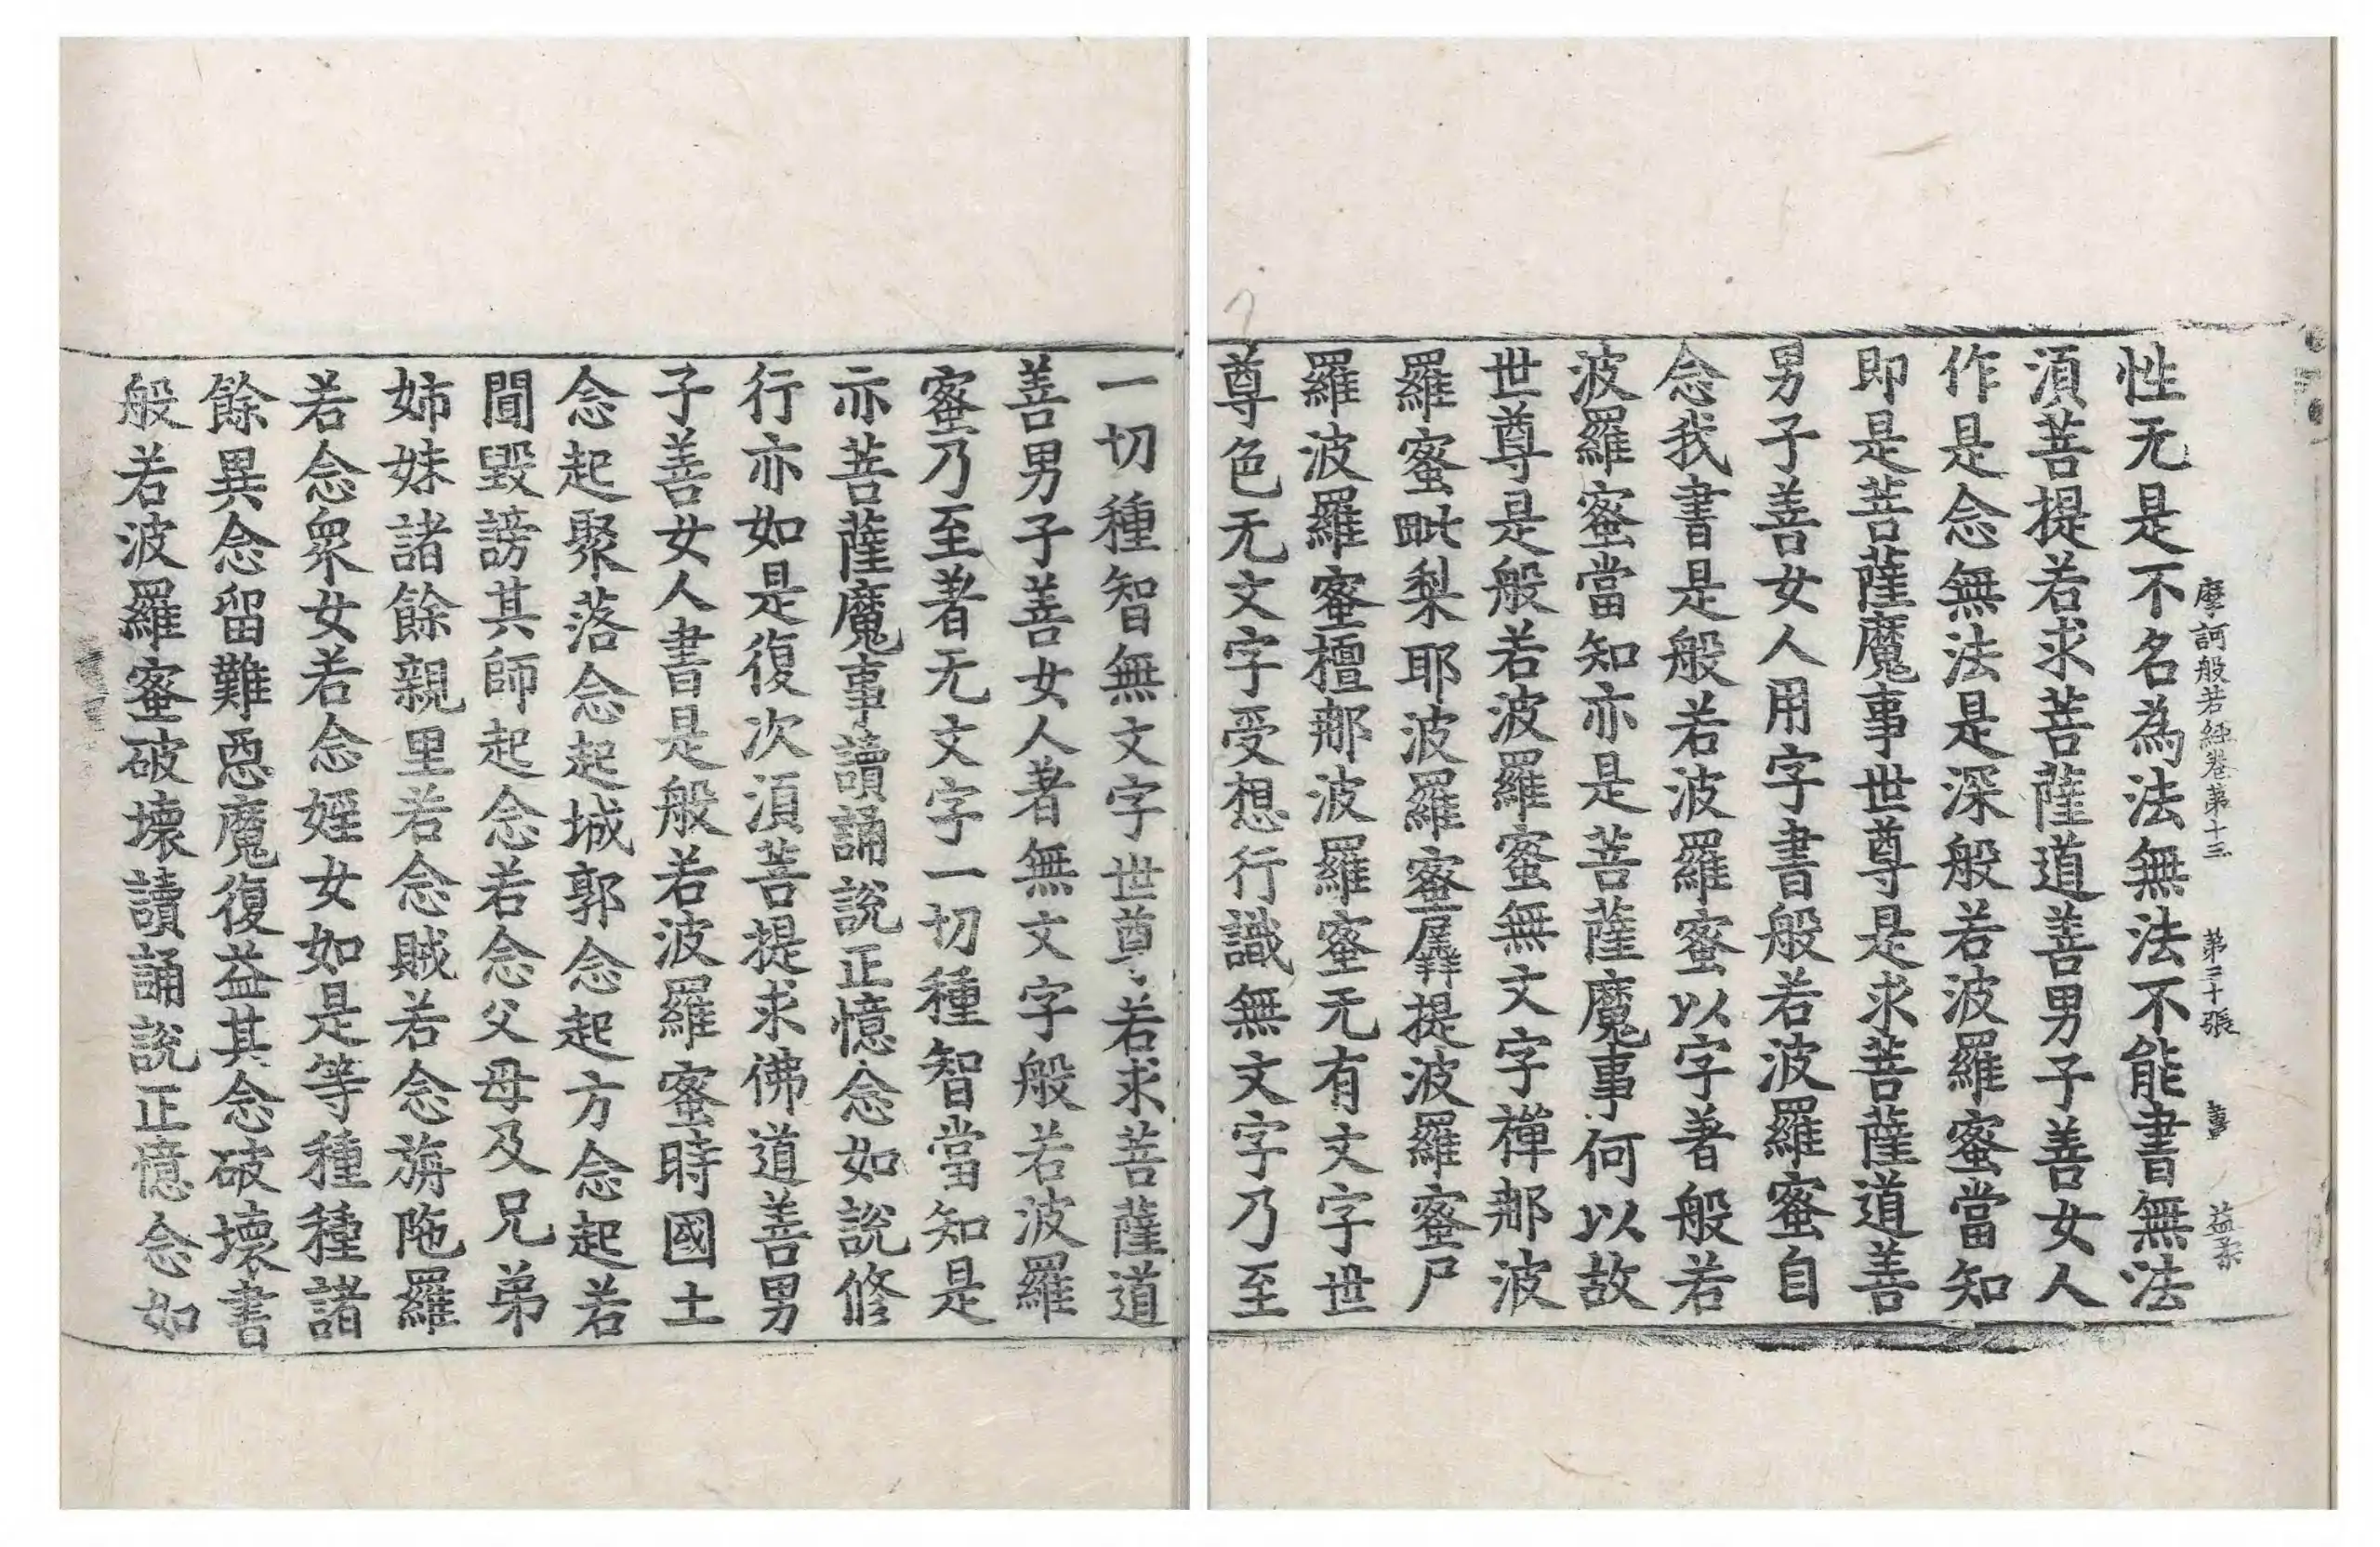 性无是不名為法無法不能書無法
摩訶般若經卷第十三 第三十張
湏菩提若求菩薩道善男子善女人
作是念無法是深般若波羅蜜當知
即是菩薩魔事世尊是求菩薩道善
男子善女人用字書般若波羅蜜自
念我書是般若波羅蜜以字著般若
波羅蜜當知亦是菩薩魔事何以故
世尊是般若波羅蜜無文字禪那波
羅蜜毗梨耶波羅蜜羼提波羅蜜尸
羅波羅蜜檀那波羅蜜无有文字世
尊色无文字受想行識無文字乃至
一切種智無文字世尊若求菩薩道
善男子善女人著無文字般若波羅
蜜乃至著无文字一切種智當知是
亦菩薩魔事讀誦說正憶念如說修
行亦如是復次湏菩提求佛道善男
子善女人書是般若波羅蜜時國土
念起聚落念起城郭念起方念起若
聞毀謗其師起念若念父母及兄弟
姊妹諸餘親里若念賊若念旃陁羅
若念衆女若念婬女如是等種種諸
餘異念留難惡魔復益其念破壞書
般若波羅蜜破壞讀誦說正憶念如